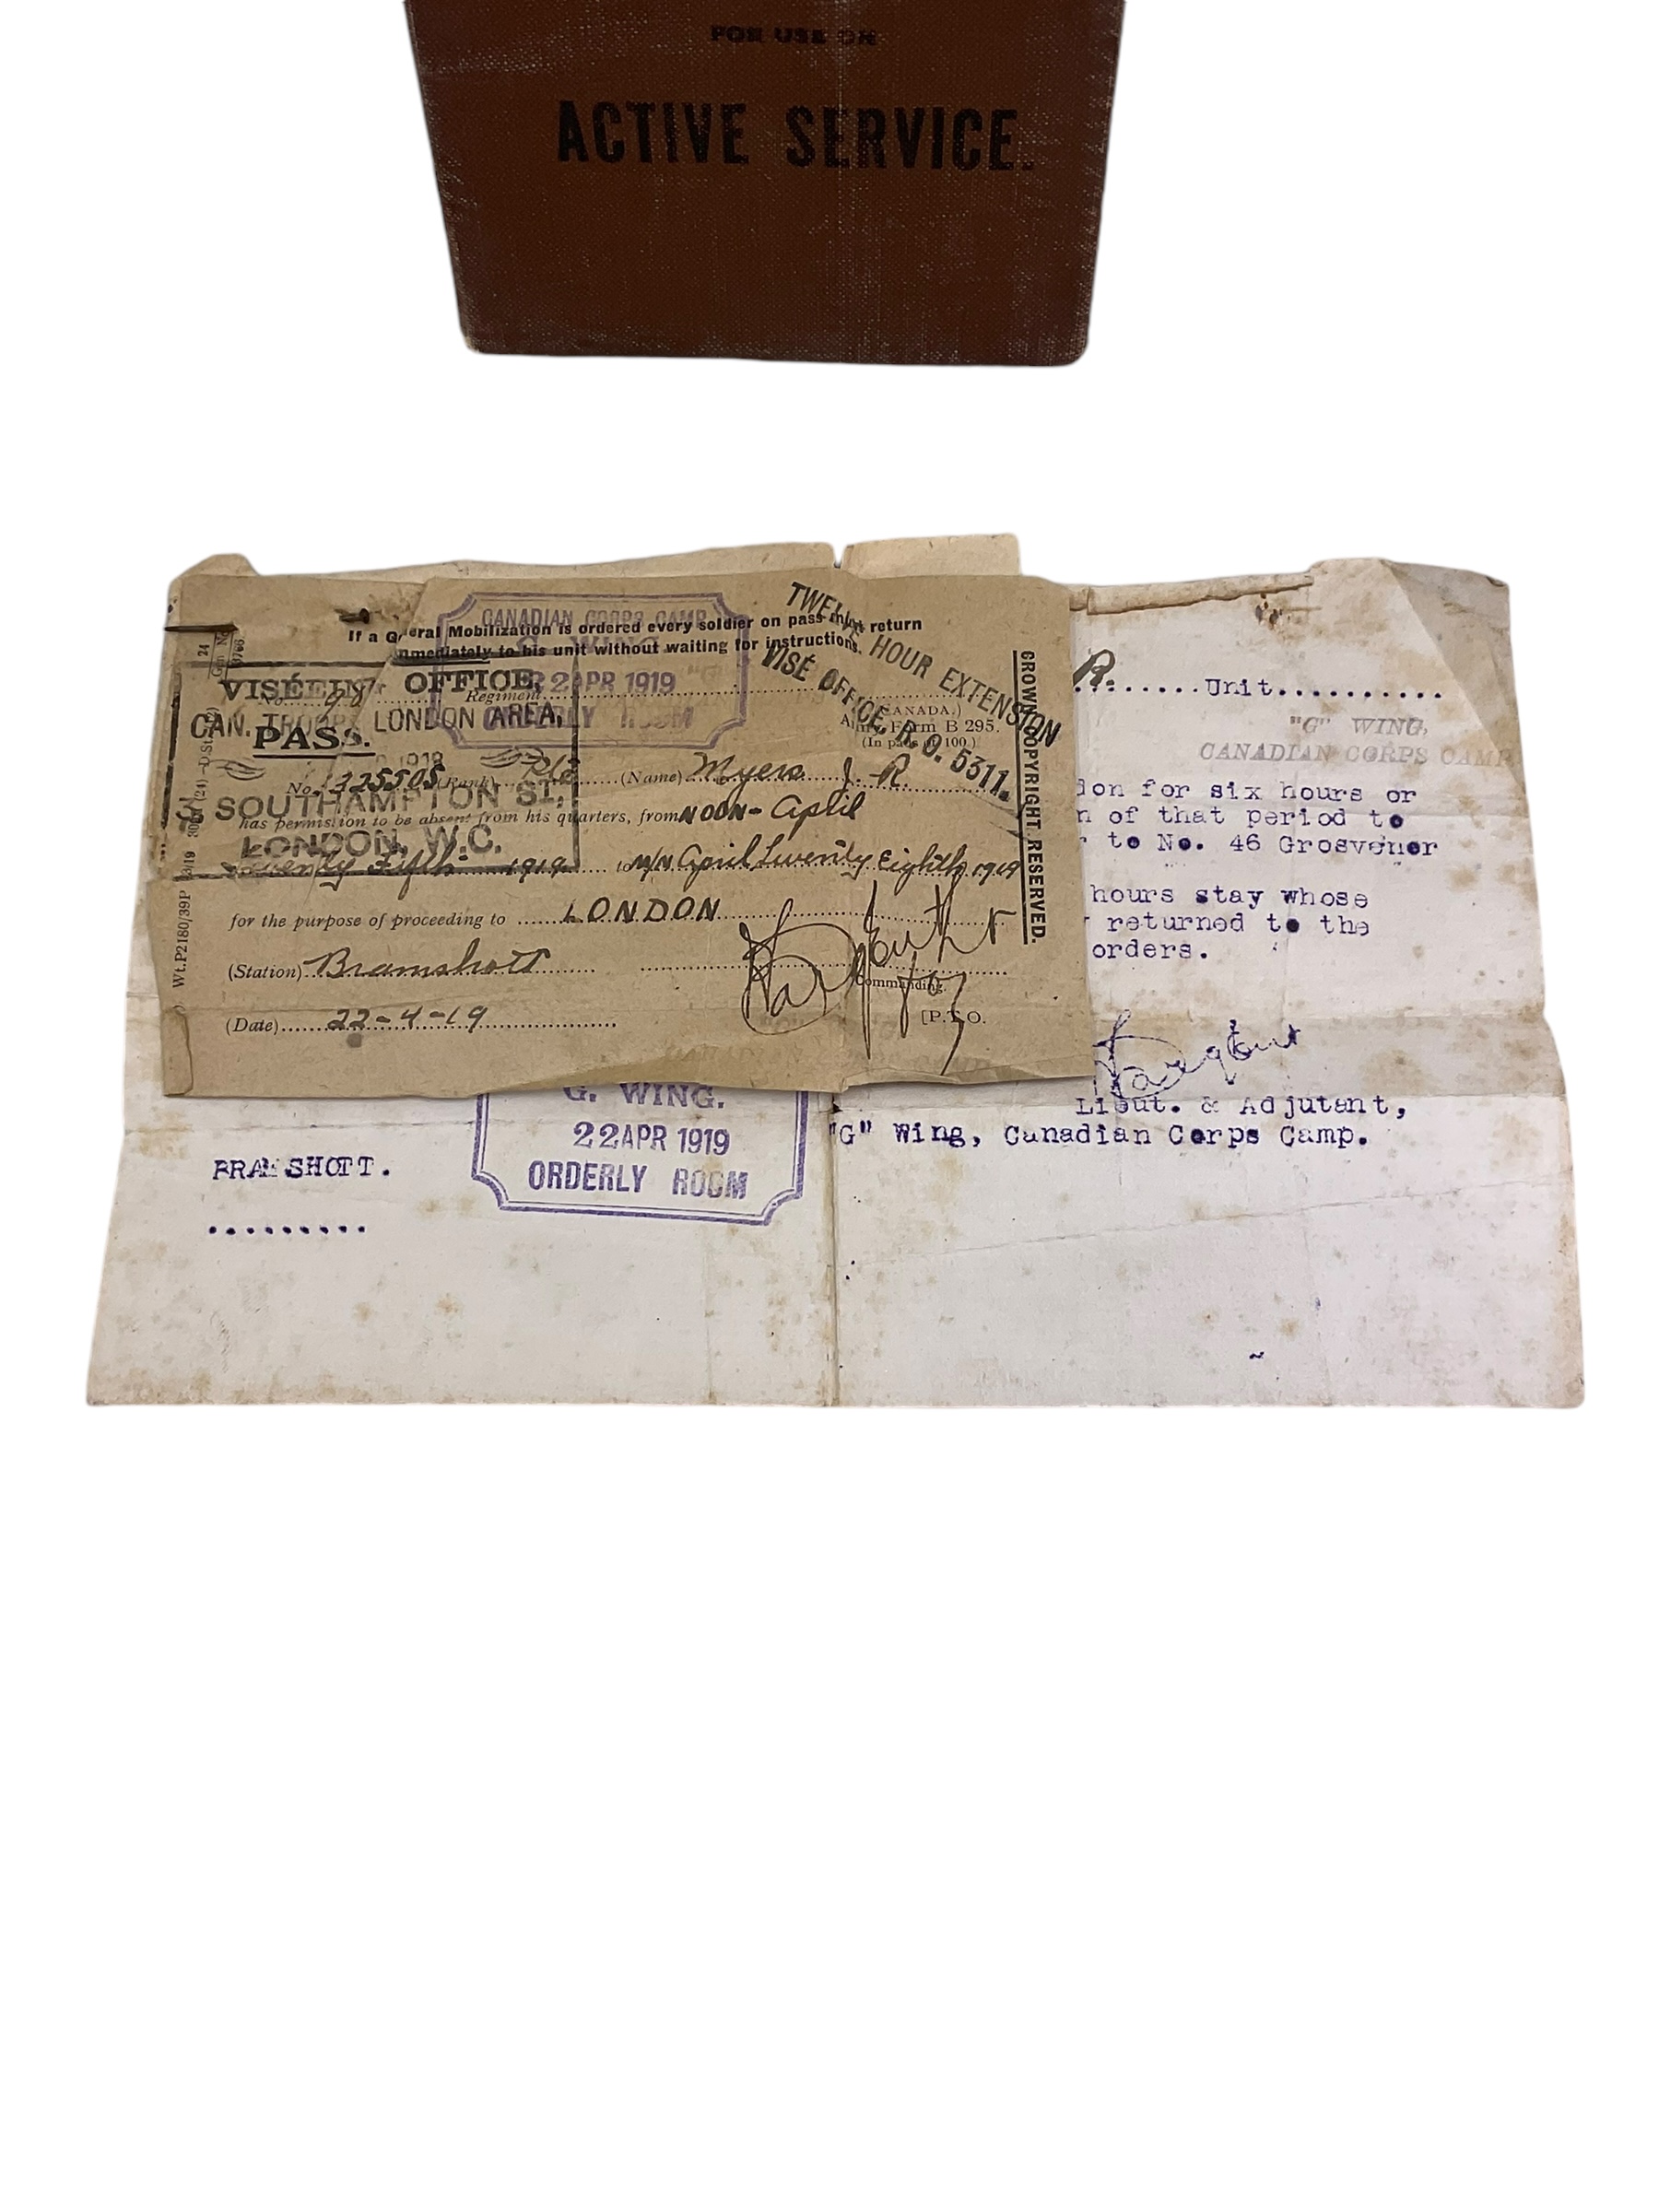 FOR USE ON
ACTIVE SERVICE.
CANADIAN CORPS CAMP
If a General Mobilization is ordered every soldier on pass must return
immediately to his unit without waiting for instructions.
TWELVE HOUR EXTENSION
VISÉ OFFICE, R.O. 5311.
VISÉ OFFICE,
No. Regiment
22 APR 1919
CAN. TROOPS, LONDON AREA,
ORDERLY ROOM
PASS.
(CANADA.)
Army Form B 295.
(In pads of 100.)
1919
No. (Rank) Pte (Name) Myers J. R.
SOUTHAMPTON ST.,
has permission to be absent from his quarters, from NOON - April
LONDON, W.C.
Twenty Fifth 1919 to M/N April Twenty Eighth 1919
for the purpose of proceeding to LONDON
(Station) Bramshott
Commanding.
(Date) 22-4-19
[P.T.O.
CROWN COPYRIGHT RESERVED.
Wt.P2180/39P
R. Unit
"G" WING,
CANADIAN CORPS CAMP
for six hours or
of that period to
to No. 46 Grosvenor
hours stay whose
returned to the
orders.
Lieut. & Adjutant,
"G" Wing, Canadian Corps Camp.
G. WING.
22 APR 1919
ORDERLY ROOM
BRAMSHOTT.